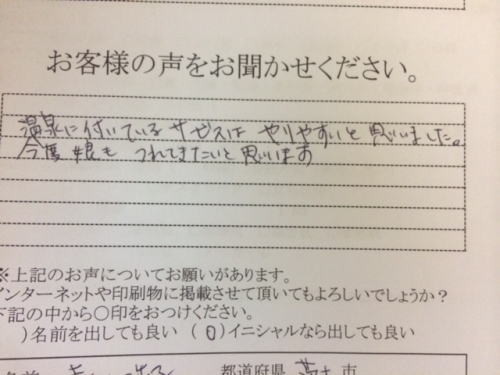 お客様の声をお聞かせください。
温泉に付いているサービスは やりやすいと思いました。
今度 娘も つれてきたいと思います
※上記のお声についてお願いがあります。
インターネットや印刷物に掲載させて頂いてもよろしいでしょうか？
下記の中から〇印をおつけください。
）名前を出しても良い （０）イニシャルなら出しても良い
都道府県 市